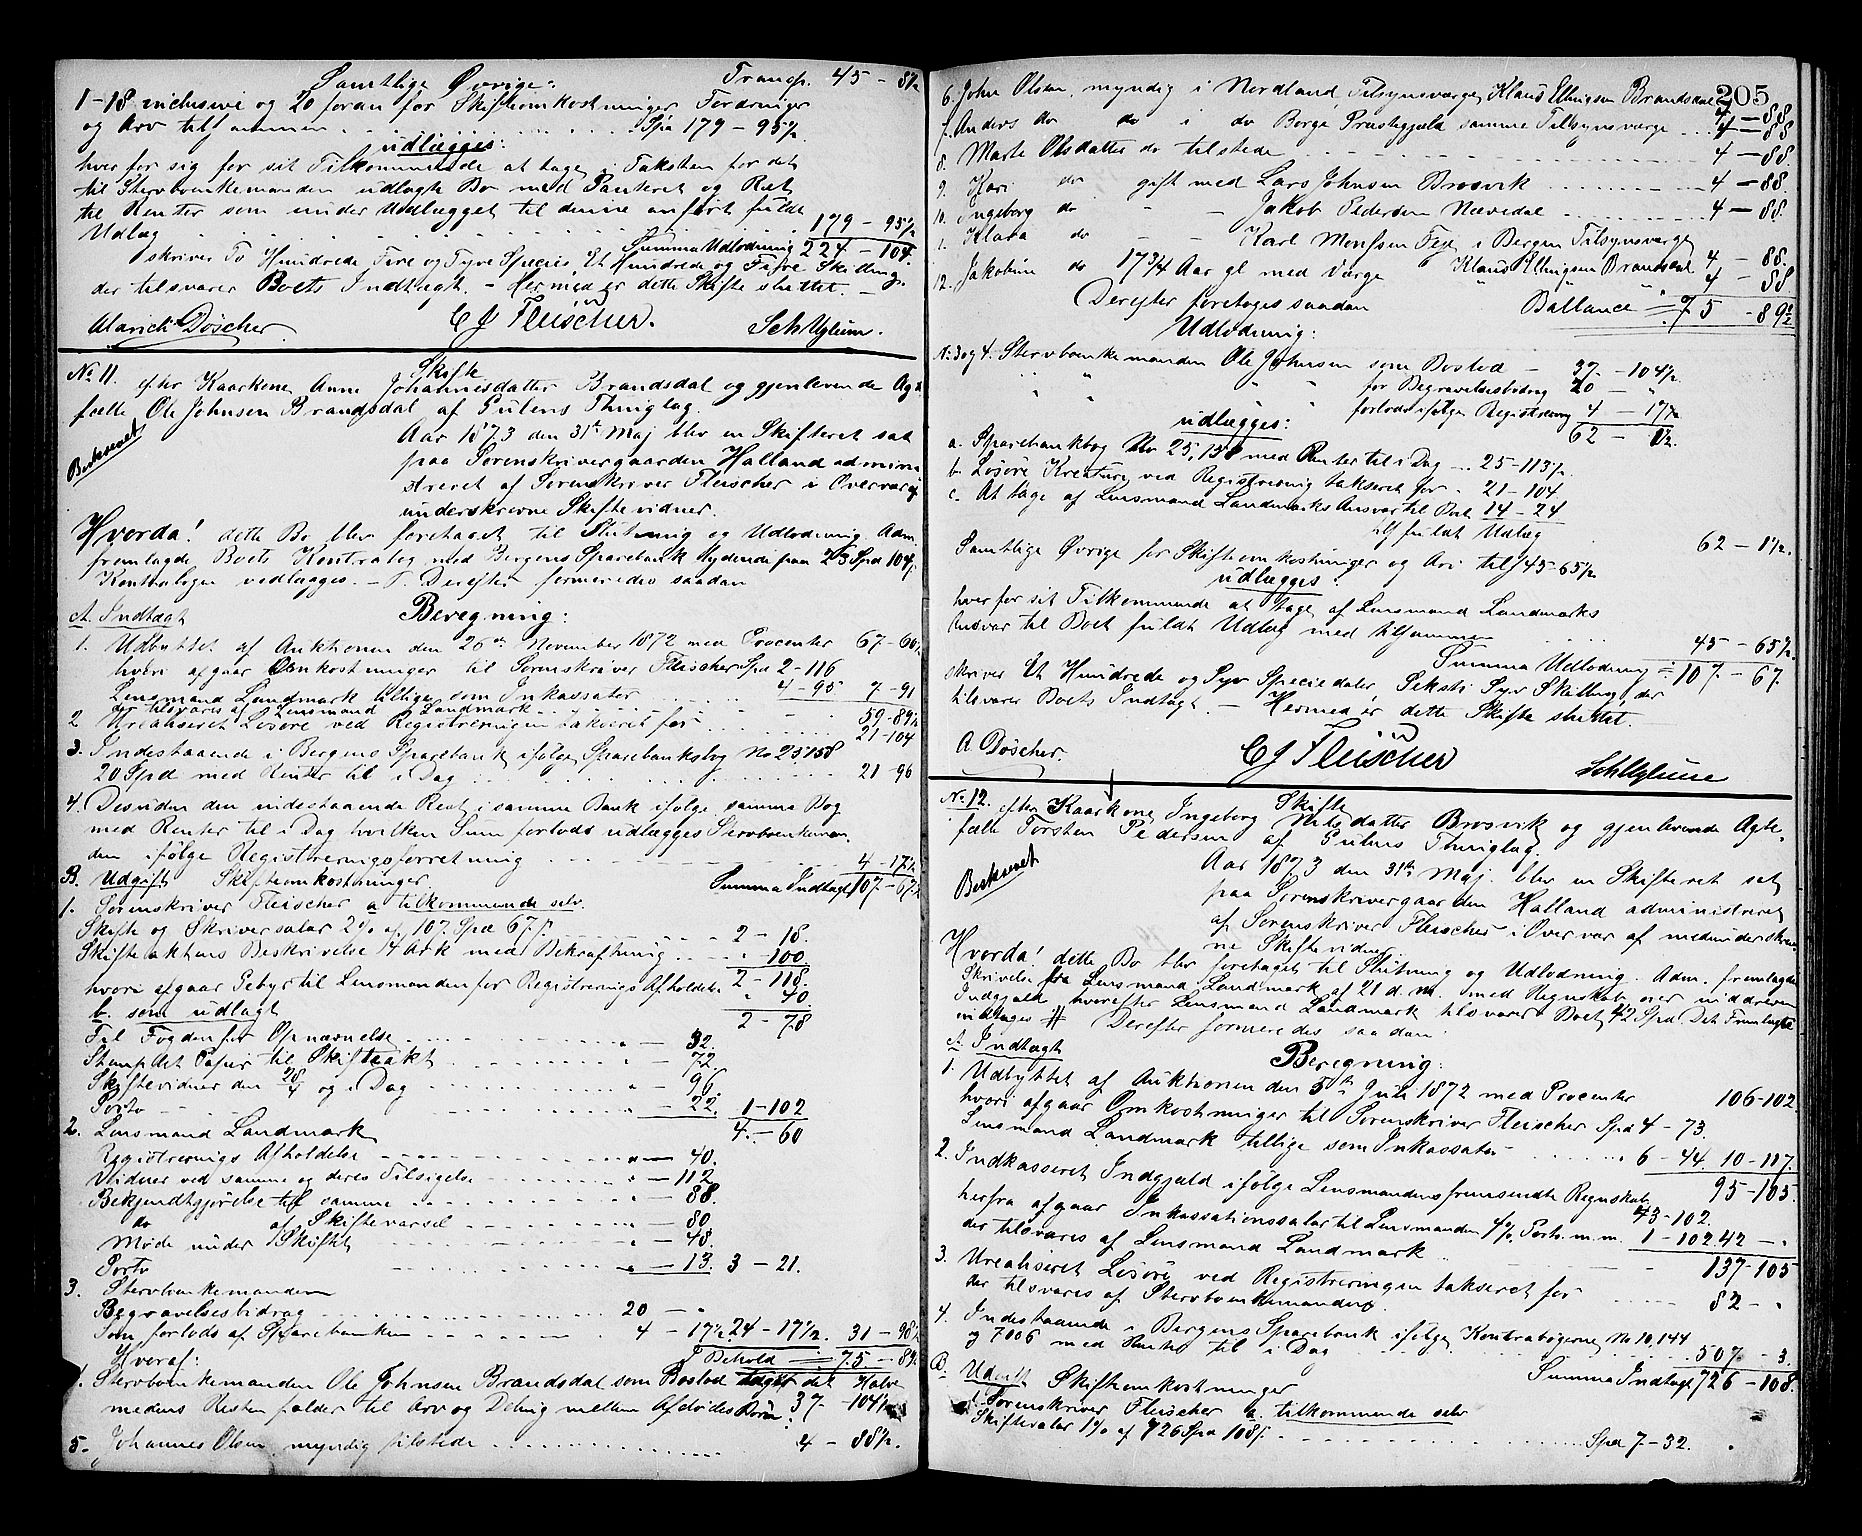 Samtlige Øvrige: Transp. 45 - 8½
1-18 inclusive og 20 foran for Skifteomkostninger Fordringer
og Arv tilsammen . . . . . . Spd 179 - 95½
udlægges:
hver for sig for sit Tilkommende at tage i Taksten for det
til Stervboenkemanden udlagte Bo med Panteret og Ret
til Renter som under Udlægget til denne anført fuldt
Udlæg . . . . 179 - 95½
Summa Udlodning 224 - 104.
skriver To Hundrede Fire og Tyve Species, Et Hundrede og Fire Skilling
der tilsvarer Boets Indtægt. - Hermed er dette Skifte sluttet. -
Alarick Döscher C J Fleischer. Sch Uglum.
No 11. Skifte
efter Kaarkone Anne Johannesdatter Brandsdal og gjenlevende Ægte-
fælle Ole Johnsen Brandsdal af Gulens Thinglag.
Beskrevet
Aar 1873 den 31te Maj blev en Skifteret sat
paa Sorenskrivergaarden Halland admini
streret af Sorenskriver Fleischer i Overvær af
underskrevne Skiftevidner.
Hvorda! dette Bo blev foretaget til Slutning og Udlodning. Adm.
fremlagde Boets Kontrabog med Bergens Sparebank lydende paa 25 Spd 104½
Kontrabogen vedlægges. - Derefter formeredes saadan
A. Indtægt Beregning:
1. Udbyttet af Auktionen den 26de November 1872 med Procenter 67-60½
hvori afgaar Omkostninger til Sorenskriver Fleischer Spd 2-116
Lensmand Landmark tillige som Inkassator 4-95 7-91
der tilsvares af Lensmand Landmark 59-89½
2 Urealiseret Løsøre ved Registreringen takseret for 21-104
3. Indestaaende i Bergens Sparebank ifølge Sparebanksbog No 25158
20 Spd med Renter til i Dag . . . 21-96
4. Desuden den indestaaende Rest i samme Bank ifølge samme Bog
med Renter til i Dag hvilken Sum forlods udlægges Stervboenkeman
den ifølge Registreringsforretning . . . 4-17½
Summa Indtægt 107-67½
B. Udgift Skifteomkostninger
1. Sorenskriver Fleischer a tilkommende selv
Skifte og Skriversalar 2% af 107 Spd 67 ß 2 - 18.
Skifteaktens Beskrivelse 4 Ark med Bekræftning . . 100
2-118.
hvori afgaar Gebyr til Lensmanden for Registrerings Afholdelse " 40.
b. som udlagt 2 - 78
Til Fogden for Opnævnelse " — 32.
Stemplet Papir til Skifteakt " - 72.
Skiftevidner den 28/4 og i Dag " — 96.
Porto " — 22. 1-102
2. Lensmand Landmark 4.-60
Registrerings Afholdelse " — 40.
Vidner ved samme og deres Tilsigelse " — 112
Bekjendtgjørelse til samme " — 88.
do af Skiftevarsel " — 80.
Møde under Skiftet " — 48.
Porto " — 13. 3 - 21.
3. Stervboenkemanden
Begravelsesbidrag 20 — "
Som forlods af Sparebanken 4 - 17½. 24 - 17½. 31 - 98½
Hveraf: Behold 75 - 89½
4. Stervboenkemanden Ole Johnsen Brandsdal som Boslod tager det Halve
medens Resten falder til Arv og Deling mellem Afdødes Børn: 37- 104½
5. Johannes Olsen myndig tilstede . . . 4 - 88½.
205
6. John Olsen, myndig i Nordland, Tilsynsværge Klaus Ellingsen Brandsdal 4-88
7. Anders do do i do Borge Præstegjæld samme Tilsynsværge . . 4-88
8. Marte Olsdatter do tilstede 4 - 88.
9. Kari do gift med Lars Johnsen Brosvik 4 - 88.
10. Ingeborg do - - Jakob Pedersen Nævedal 4 - 88.
1. Klara do - - Karl Monssen Feje i Bergen Tilsynsværge
Klaus Ellingsen Brandsdal 4 - 88.
12. Jakobine do 17¾ Aar gl med Værge " " " 4 - 88
Derefter foretoges saadan Ballance 75 - 89½
Udlodning:
No 3 og 4. Stervboenkemanden Ole Johnsen som Boslod - 37 - 104½.
" " " " for Begravelsesbidrag 20 — "
" " " " forlods ifølge Registrering 4 - 17½
udlægges: 62 - 1½.
a. Sparebankbog No 25,158 med Renter til i Dag ... 25-113½.
b. Løsøre Kreature ved Registrering takseret for . 21-104.
c. At tage af Lensmand Landmarks Ansvar til Boet 14-24
tils. fuldt Udlæg 62 - 1½.
Samtlige Øvrige for Skifteomkostninger og Arv tils. 45-65½
udlægges:
hver for sit Tilkommende at tage af Lensmand Landmarks
Ansvar til Boet fuldt Udlæg med tilsammen 45 - 65½.
Summa Udlodning 107 - 67.
skriver Et Hundrede og Syv Speciedaler, Seksti Syv Skilling, der
tilsvarer Boets Indtægt. - Hermed er dette Skifte sluttet.
A Döscher. C J Fleischer Sch Uglum
No 12. Skifte
efter Kaarkone Ingeborg Nilsdatter Brosvik og gjenlevende Ægte-
fælle Torsten Pedersen af Gulens Thinglag
Beskrevet
Aar 1873 den 31te Maj. blev en Skifteret sat
paa Sorenskrivergaarden Halland administreret
af Sorenskriver Fleischer i Overvær af medunderskrev
ne Skiftevidner
Hvorda! dette Bo blev foretaget til Slutning og Udlodning. Adm. fremlagde
Skrivelse fra Lensmand Landmark af 21 d. m. med Regnskab over inddreven
Indgjæld, hvorefter Lensmand Landmark tilsvarer Boet 42 Spd. Det Fremlagte
indtages # Derefter formeredes saadan
A Indtægt Beregning:
1. Udbyttet af Auktionen den 5te Juli 1872 med Procenter 106-102.
hvori afgaar Omkostninger til Sorenskriver Fleischer Spd 4 - 73.
Lensmand Landmark tillige som Inkassator 6 - 44 10-117.
95-105.
2. Indkasseret Indgjæld ifølge Lensmandens fremsendte Regnskab 43-102.
herfra afgaar Inkassationssalar til Lensmanden 4% Porto m.m. 1-102 42 — "
der tilsvares af Lensmand Landmark 137-105
3. Urealiseret Løsøre ved Registreringen takseret for
der tilsvares af Stervboenkemanden 82 - "
4. Indestaaende i Bergens Sparebank ifølge Kontrabøgerne No 10,144
og 7006 med Renter til i Dag . . . 507 - 3.
Summa Indtægt 726 - 108.
B. Udgift Skifteomkostninger
1. Sorenskriver Fleischer a. tilkommende selv
Skiftesalar 1% af 726 Spd 108 ß. . . . Spd 7-32.